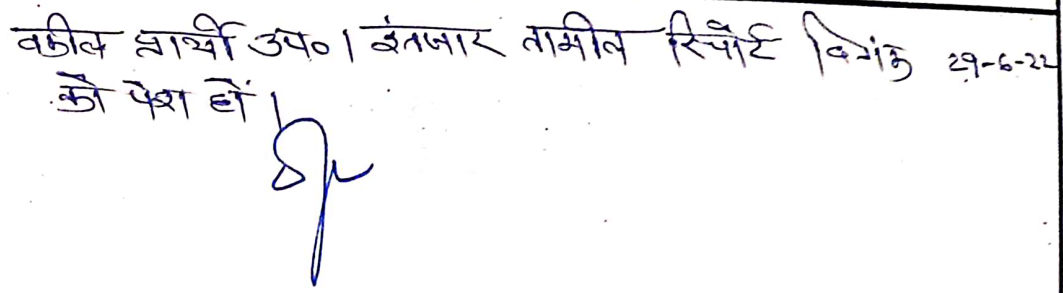 वकील प्रार्थी उप० । इंतजार तामील रिपोर्ट दिनांक 29-6-22
को पेश हों ।